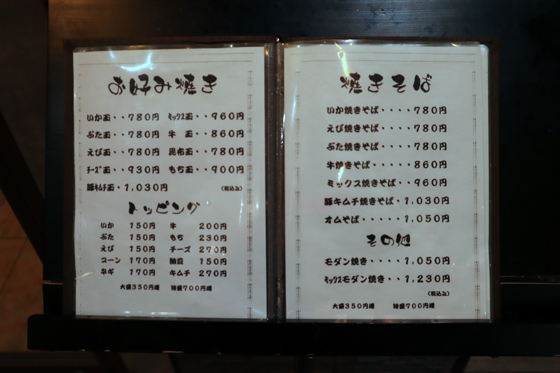 お好み焼き
いか玉・・780円 ミックス玉・・960円
ぶた玉・・780円 牛 玉・・860円
えび玉・・780円 昆布玉・・780円
チーズ玉・・930円 もち玉・・900円
豚キムチ玉・1,030円 (税込み)
トッピング
いか 150円 牛 200円
ぶた 150円 もち 230円
えび 150円 チーズ 270円
コーン 170円 納豆 150円
ネギ 170円 キムチ 270円
大盛350円増 特盛700円増
焼きそば
いか焼きそば・・・・780円
えび焼きそば・・・・780円
ぶた焼きそば・・・・780円
牛焼きそば・・・・860円
ミックス焼きそば・・960円
豚キムチ焼きそば・1,030円
オムそば・・・・・1,050円
その他
モダン焼き・・・・1,050円
ミックスモダン焼き・・1,230円
(税込み)
大盛350円増 特盛700円増